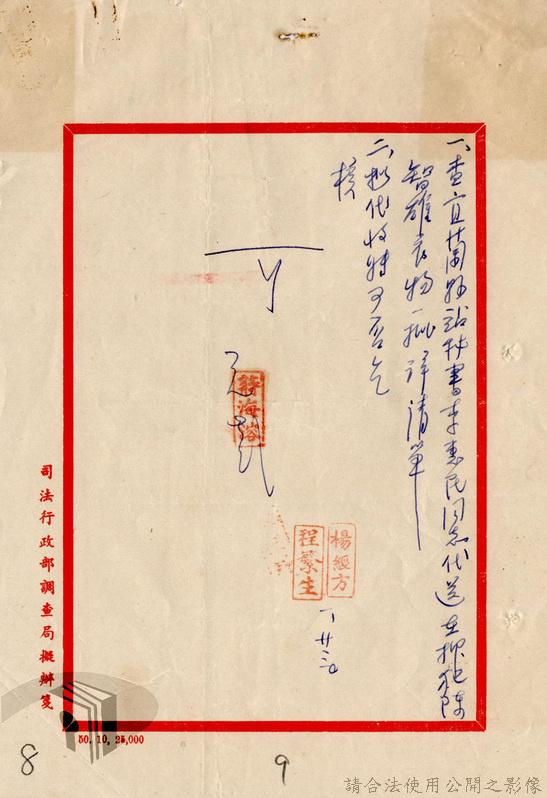 一、查宜蘭縣站秘書李惠民同志代送在押犯陳
智雄衣物一批詳清單
二、擬代收轉可否乞
核
可
蔣海溶
楊經方
程繁生
一廿三
司法行政部調查局擬辦箋
50. 10. 25,000
8
9
請合法使用公開之影像